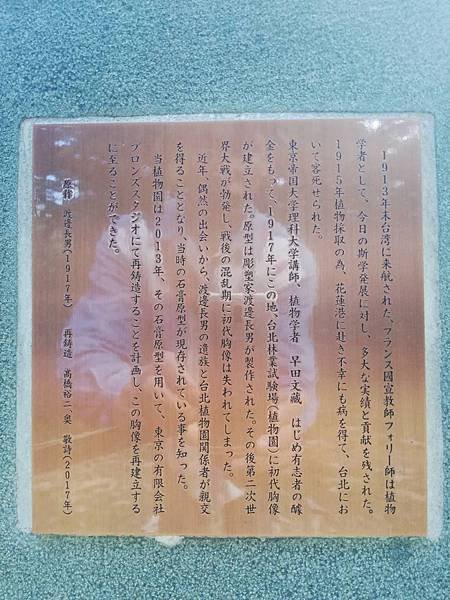 1913年末台湾に来航された、フランス國宣教師フォリー師は植物
学者として、今日の斯学発展に対し、多大な実績と貢献を残された。
1915年植物採取の為、花蓮港に赴き不幸にも病を得て、台北にお
いて客死せられた。
東京帝国大学理科大学講師、植物学者 早田文藏 はじめ有志者の醵
金をもって、1917年にこの地、台北林業試験場(植物園)に初代胸像
が建立された。原型は彫塑家渡邊長男が製作された。その後第二次世
界大戦が勃発し、戦後の混乱期に初代胸像は失われてしまった。
近年、偶然の出会いから、渡邊長男の遺族と台北植物園関係者が親交
を得ることとなり、当時の石膏原型が現存されている事を知った。
当植物園は2013年、その石膏原型を用いて、東京の有限会社
ブロンズスタジオにて再鋳造することを計画し、この胸像を再建立する
に至ることができた。
原作 渡邊長男(1917年) 再鋳造 高橋裕二 奐 敬詩(2017年)